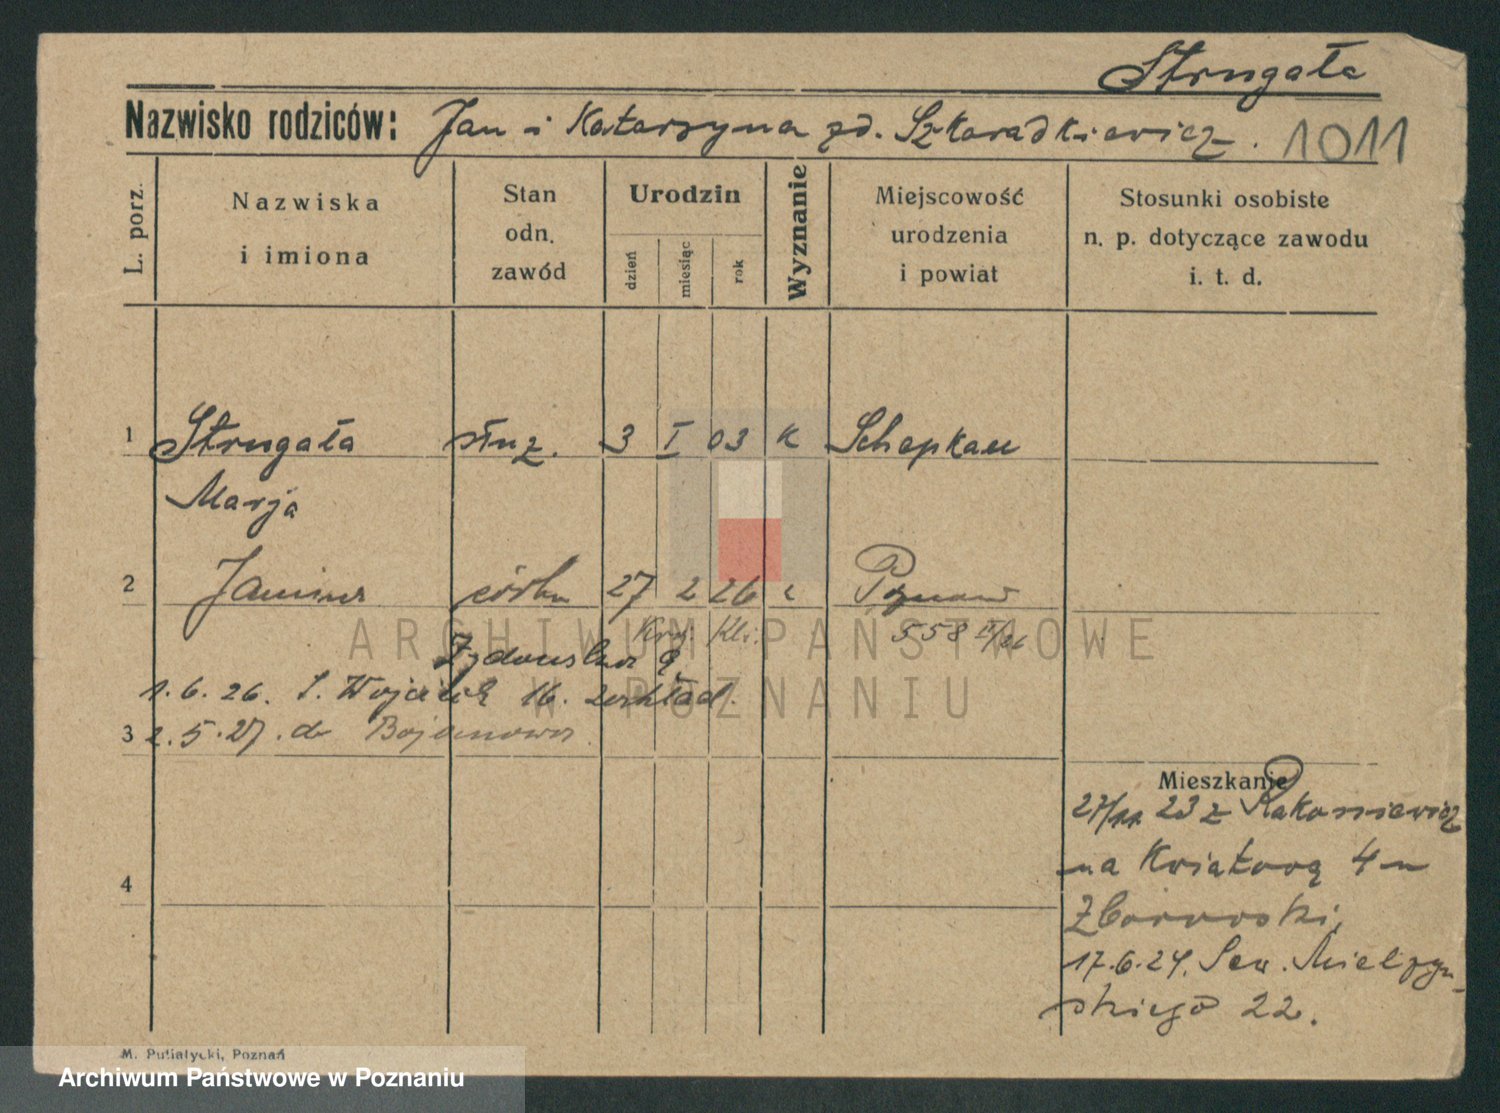 Strugała
Nazwisko rodziców: Jan i Katarzyna zd. Szkaradkiewicz. 1011
L. porz.
Nazwiska
i imiona
Stan
odn.
zawód
Urodzin
dzień
miesiąc
rok
Wyznanie
Miejscowość
urodzenia
i powiat
Stosunki osobiste
n. p. dotyczące zawodu
i. t. d.
1 Strugała służ. 3 I 03 K
Marja
2 Janina córka 27 2 26
Poznań
558
ARCHIWUM PAŃSTWOWE
W POZNANIU
1.6.26. Ś. Wojciech 16. zakład.
3 2.5.27. do Bojanowa
Mieszkanie
27/11 23 z Rakoniewic
na Kwiatową 4 u
4
Zborowski,
17.6.24. Sew. Mielżyń-
skiego 22.
M. Putiatycki, Poznań
Archiwum Państwowe w Poznaniu